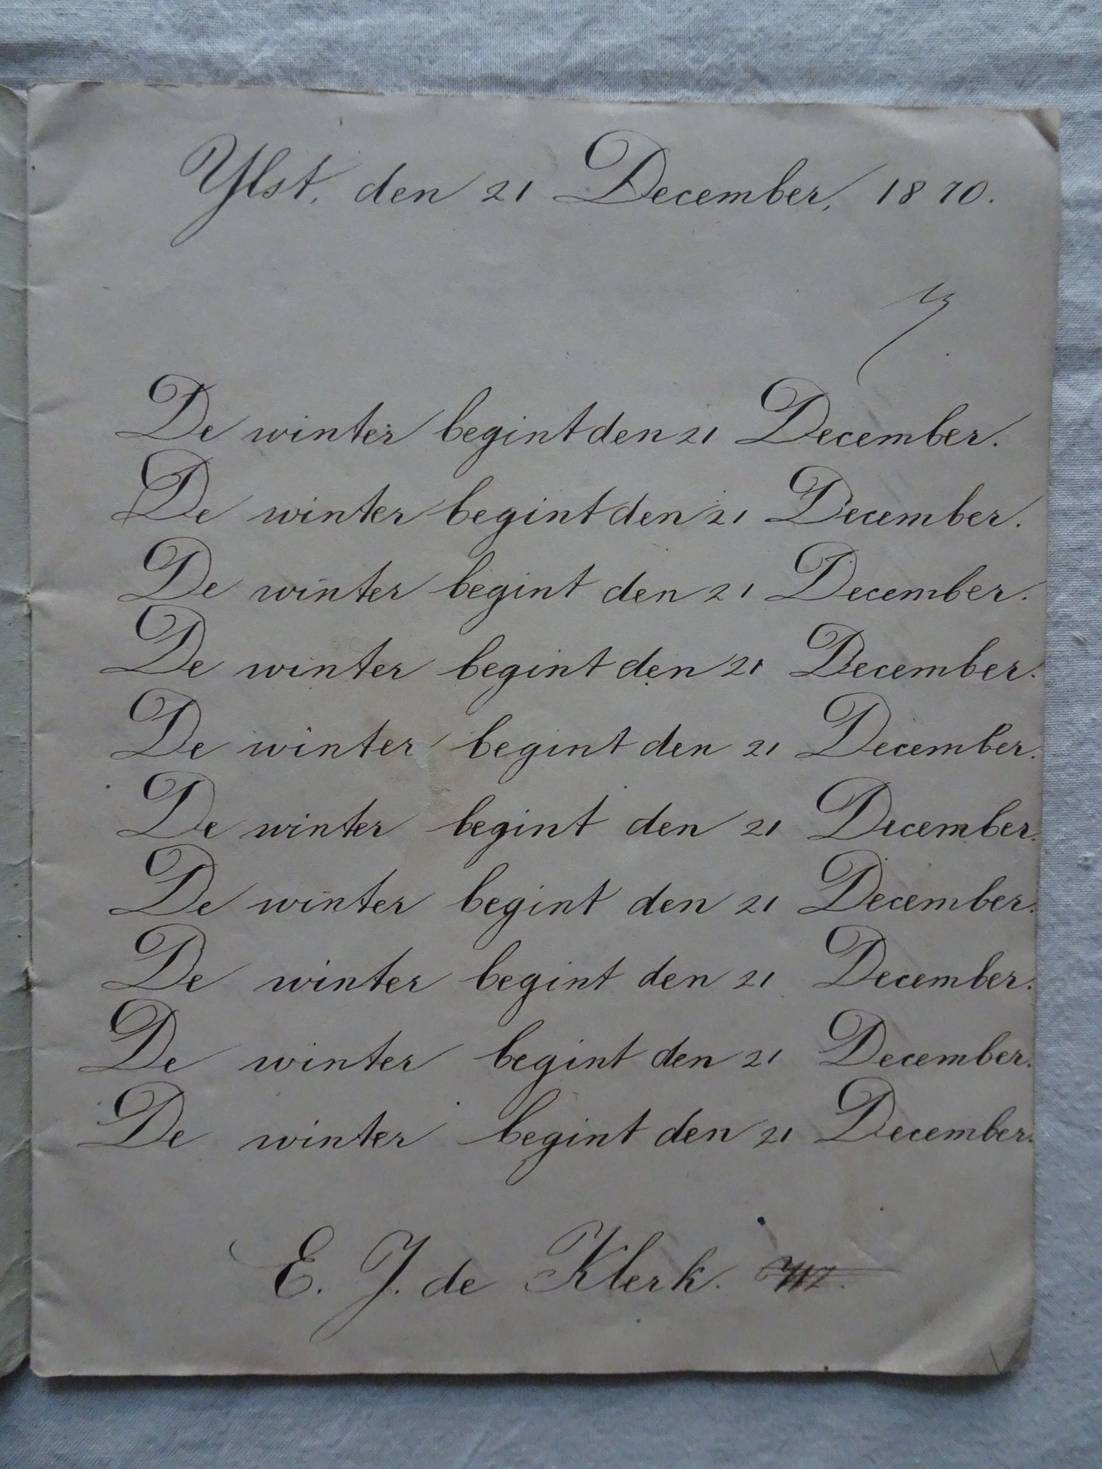 Ylst, den 21 December, 1870.
De winter begint den 21 December.
De winter begint den 21 December.
De winter begint den 21 December.
De winter begint den 21 December.
De winter begint den 21 December.
De winter begint den 21 December.
De winter begint den 21 December.
De winter begint den 21 December.
De winter begint den 21 December.
De winter begint den 21 December.
E. J. de Klerk.